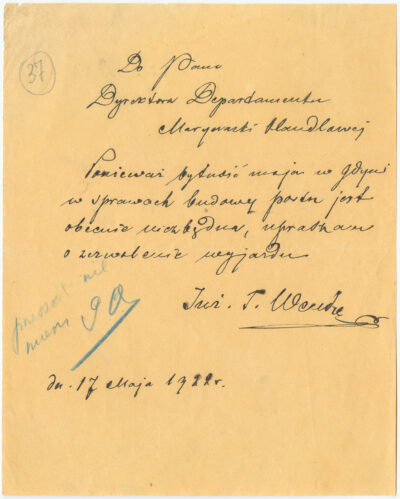 37
Do Pana
Dyrektora Departamentu
Marynarki Handlowej
Ponieważ bytność moja w Gdyni
w sprawach budowy portu jest
obecnie niezbędna, upraszam
o zezwolenie wyjazdu
Inż. T. Wenda
dn. 17 Maja 1922r.